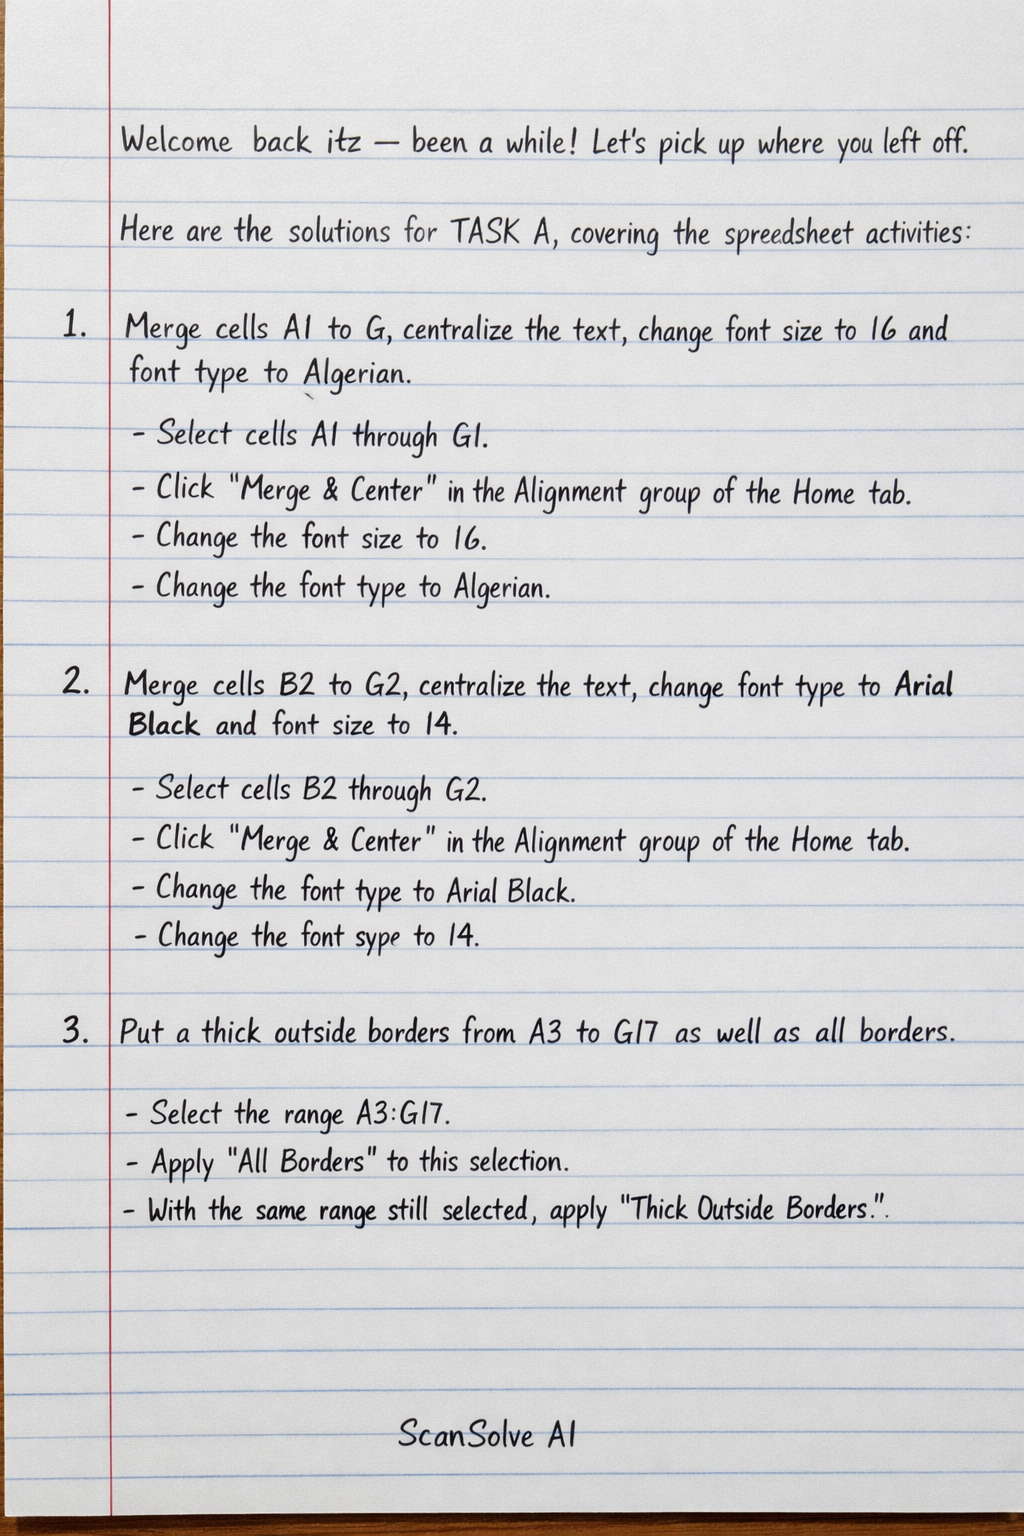 Welcome back itz — been a while! Let's pick up where you left off.
Here are the solutions for TASK A, covering the spreedsheet activities:
1. Merge cells A1 to G, centralize the text, change font size to 16 and
font type to Algerian.
- Select cells A1 through G1.
- Click "Merge & Center" in the Alignment group of the Home tab.
- Change the font size to 16.
- Change the font type to Algerian.
2. Merge cells B2 to G2, centralize the text, change font type to Arial
Black and font size to 14.
- Select cells B2 through G2.
- Click "Merge & Center" in the Alignment group of the Home tab.
- Change the font type to Arial Black.
- Change the font sype to 14.
3. Put a thick outside borders from A3 to G17 as well as all borders.
- Select the range A3:G17.
- Apply "All Borders" to this selection.
- With the same range still selected, apply "Thick Outside Borders.".
ScanSolve AI